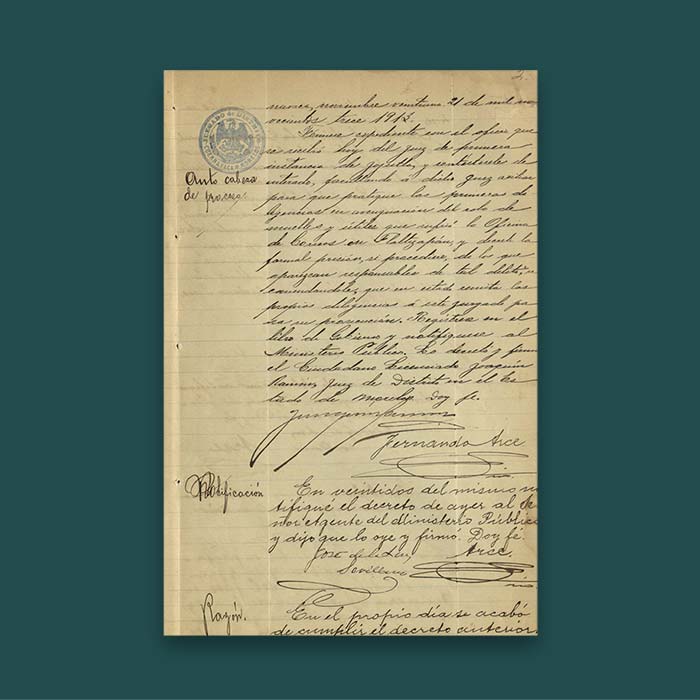 2.
navaca, noviembre veintiuno 21 de mil no-
vecientos trece 1913.
Fórmese expediente con el oficio que
se recibió hoy del juez de primera
instancia de Jojutla, y contéstesele de
enterado, facultando á dicho juez
para que practique las primeras di-
ligencias en averiguación del robo de
muebles y útiles que sufrió la Oficina
de Correos en Tlaltizapán, y decrete la
formal prisión, si procediere, de los que
aparezcan responsables de tal delito,
que en estado remita las
propias diligencias á este juzgado pa-
ra su prosecución. Regístrese en el
libro de Gobierno y notifíquese al
Ministerio Público. Lo decretó y firmó
el Ciudadano Licenciado Joaquín
Ramírez, Juez de Distrito en el Es-
tado de Morelos. Doy fé.
Auto cabeza
de proceso.
Fernando Arce
Srio.
Notificación
En veintidos del mismo no-
tifiqué el decreto de ayer al Se-
ñor Agente del Ministerio Público
y dijo que lo oye y firmó. Doy fé.
José de la Luz Arce.
Sevillano Srio.
Razón.
En el propio día se acabó
de cumplir el decreto anterior.